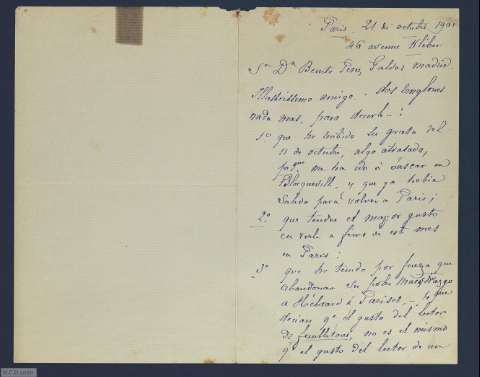 Paris 21 de octubre 1901
46 avenue Kléber
Sr Dn Benito Perez Galdos Madrid
Illustrissimo amigo. Dos renglones
nada mas, para decirle:
1o que he recibido su grata del
11 de octubre, algo atrasado,
me ha ido á buscar en
y que ya habia
salido para volver a Paris;
2o que tendre el mayor gusto
en verle a fines de este mes
en Paris;
3o que he tenido por fuerza que
abandonar su pobre Maestrazgo
a Hébrard á Pariset,
decian qe el gusto del lector
de feuilletons, no es el mismo
qe el gusto del lector de un